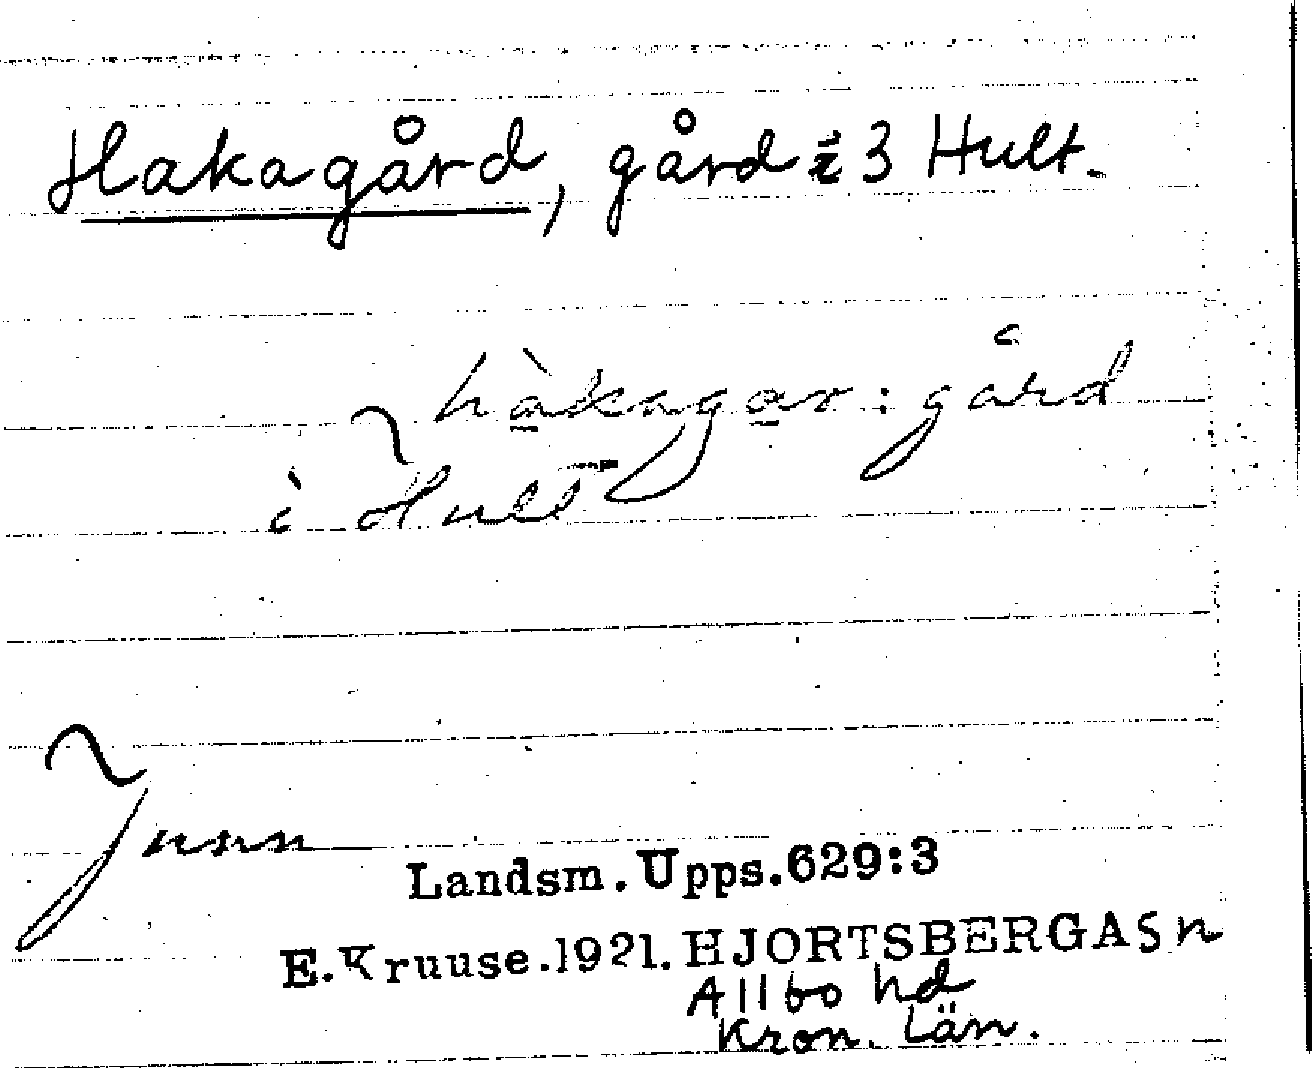 Hakagård, gård i 3 Hult.
hàkagar: gård
i Hult
Landsm. Upps. 629:3
E. Kruuse. 1921. HJORTSBERGA Sn
Allbo hd
Kron. län.